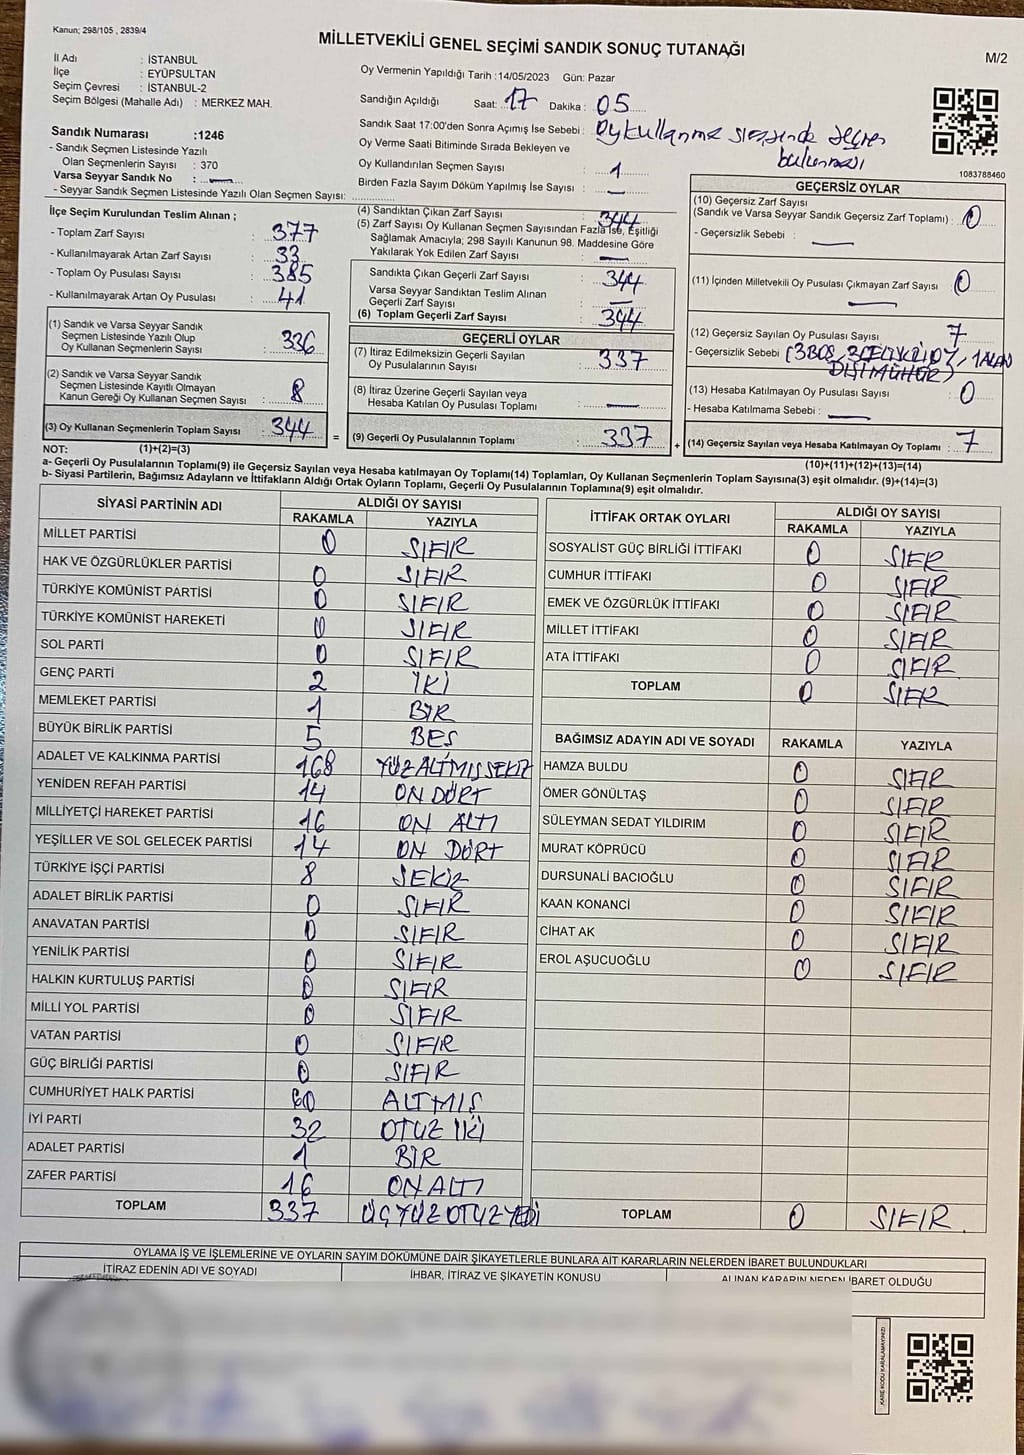 Kanun; 298/105 , 2839/4
MİLLETVEKİLİ GENEL SEÇİMİ SANDIK SONUÇ TUTANAĞI
M/2
İl Adı : İSTANBUL
İlçe : EYÜPSULTAN
Seçim Çevresi : İSTANBUL-2
Seçim Bölgesi (Mahalle Adı) : MERKEZ MAH.
Sandık Numarası :1246
- Sandık Seçmen Listesinde Yazılı
Olan Seçmenlerin Sayısı : 370
Varsa Seyyar Sandık No :
- Seyyar Sandık Seçmen Listesinde Yazılı Olan Seçmen Sayısı:
Oy Vermenin Yapıldığı Tarih :14/05/2023 Gün: Pazar
Sandığın Açıldığı Saat: 17 Dakika : 05
Sandık Saat 17:00'den Sonra Açımış İse Sebebi : Oy kullanma sırasında seçmen
bulunması
Oy Verme Saati Bitiminde Sırada Bekleyen ve
Oy Kullandırılan Seçmen Sayısı : 1
Birden Fazla Sayım Döküm Yapılmış İse Sayısı : —
1083788460
İlçe Seçim Kurulundan Teslim Alınan ;
- Toplam Zarf Sayısı : 377
- Kullanılmayarak Artan Zarf Sayısı : 33
- Toplam Oy Pusulası Sayısı : 385
- Kullanılmayarak Artan Oy Pusulası : 41
(1) Sandık ve Varsa Seyyar Sandık
Seçmen Listesinde Yazılı Olup
Oy Kullanan Seçmenlerin Sayısı : 336
(2) Sandık ve Varsa Seyyar Sandık
Seçmen Listesinde Kayıtlı Olmayan
Kanun Gereği Oy Kullanan Seçmen Sayısı : 8
(3) Oy Kullanan Seçmenlerin Toplam Sayısı : 344
(4) Sandıktan Çıkan Zarf Sayısı : 344
(5) Zarf Sayısı Oy Kullanan Seçmen Sayısından Fazla İse, Eşitliği
Sağlamak Amacıyla; 298 Sayılı Kanunun 98. Maddesine Göre
Yakılarak Yok Edilen Zarf Sayısı : —
Sandıkta Çıkan Geçerli Zarf Sayısı : 344
Varsa Seyyar Sandıktan Teslim Alınan
Geçerli Zarf Sayısı : —
(6) Toplam Geçerli Zarf Sayısı : 344
GEÇERLİ OYLAR
(7) İtiraz Edilmeksizin Geçerli Sayılan
Oy Pusulalarının Sayısı : 337
(8) İtiraz Üzerine Geçerli Sayılan veya
Hesaba Katılan Oy Pusulası Toplamı : —
= (9) Geçerli Oy Pusulalarının Toplamı : 337 +
GEÇERSİZ OYLAR
(10) Geçersiz Zarf Sayısı
(Sandık ve Varsa Seyyar Sandık Geçersiz Zarf Toplamı) : 0
- Geçersizlik Sebebi : —
(11) İçinden Milletvekili Oy Pusulası Çıkmayan Zarf Sayısı : 0
—
(12) Geçersiz Sayılan Oy Pusulası Sayısı : 7
- Geçersizlik Sebebi (3BOŞ, 1ALAN
DIŞI MÜHÜR)
(13) Hesaba Katılmayan Oy Pusulası Sayısı : 0
- Hesaba Katılmama Sebebi : —
(14) Geçersiz Sayılan veya Hesaba Katılmayan Oy Toplamı : 7
NOT: (1)+(2)=(3)
(10)+(11)+(12)+(13)=(14)
a- Geçerli Oy Pusulalarının Toplamı(9) ile Geçersiz Sayılan veya Hesaba katılmayan Oy Toplamı(14) Toplamları, Oy Kullanan Seçmenlerin Toplam Sayısına(3) eşit olmalıdır. (9)+(14)=(3)
b- Siyasi Partilerin, Bağımsız Adayların ve İttifakların Aldığı Ortak Oyların Toplamı, Geçerli Oy Pusulalarının Toplamına(9) eşit olmalıdır.
SİYASİ PARTİNİN ADI ALDIĞI OY SAYISI
RAKAMLA YAZIYLA
MİLLET PARTİSİ 0 SIFIR
HAK VE ÖZGÜRLÜKLER PARTİSİ 0 SIFIR
TÜRKİYE KOMÜNİST PARTİSİ 0 SIFIR
TÜRKİYE KOMÜNİST HAREKETİ 0 SIFIR
SOL PARTİ 0 SIFIR
GENÇ PARTİ 2 İKİ
MEMLEKET PARTİSİ 1 BİR
BÜYÜK BİRLİK PARTİSİ 5 BEŞ
ADALET VE KALKINMA PARTİSİ 168 YÜZ ALTMIŞ SEKİZ
YENİDEN REFAH PARTİSİ 14 ON DÖRT
MİLLİYETÇİ HAREKET PARTİSİ 16 ON ALTI
YEŞİLLER VE SOL GELECEK PARTİSİ 14 ON DÖRT
TÜRKİYE İŞÇİ PARTİSİ 8 SEKİZ
ADALET BİRLİK PARTİSİ 0 SIFIR
ANAVATAN PARTİSİ 0 SIFIR
YENİLİK PARTİSİ 0 SIFIR
HALKIN KURTULUŞ PARTİSİ 0 SIFIR
MİLLİ YOL PARTİSİ 0 SIFIR
VATAN PARTİSİ 0 SIFIR
GÜÇ BİRLİĞİ PARTİSİ 0 SIFIR
CUMHURİYET HALK PARTİSİ 60 ALTMIŞ
İYİ PARTİ 32 OTUZ İKİ
ADALET PARTİSİ 1 BİR
ZAFER PARTİSİ 16 ON ALTI
TOPLAM 337 ÜÇ YÜZ OTUZ YEDİ
İTTİFAK ORTAK OYLARI ALDIĞI OY SAYISI
RAKAMLA YAZIYLA
SOSYALİST GÜÇ BİRLİĞİ İTTİFAKI 0 SIFIR
CUMHUR İTTİFAKI 0 SIFIR
EMEK VE ÖZGÜRLÜK İTTİFAKI 0 SIFIR
MİLLET İTTİFAKI 0 SIFIR
ATA İTTİFAKI 0 SIFIR
TOPLAM 0 SIFIR
BAĞIMSIZ ADAYIN ADI VE SOYADI RAKAMLA YAZIYLA
HAMZA BULDU 0 SIFIR
ÖMER GÖNÜLTAŞ 0 SIFIR
SÜLEYMAN SEDAT YILDIRIM 0 SIFIR
MURAT KÖPRÜCÜ 0 SIFIR
DURSUNALİ BACIOĞLU 0 SIFIR
KAAN KONANCİ 0 SIFIR
CİHAT AK 0 SIFIR
EROL AŞUCUOĞLU 0 SIFIR
TOPLAM 0 SIFIR
OYLAMA İŞ VE İŞLEMLERİNE VE OYLARIN SAYIM DÖKÜMÜNE DAİR ŞİKAYETLERLE BUNLARA AİT KARARLARIN NELERDEN İBARET BULUNDUKLARI
İTİRAZ EDENİN ADI VE SOYADI İHBAR, İTİRAZ VE ŞİKAYETİN KONUSU ALINAN KARARIN NEDEN İBARET OLDUĞU
KARE KODU KARALAMAYINIZ!